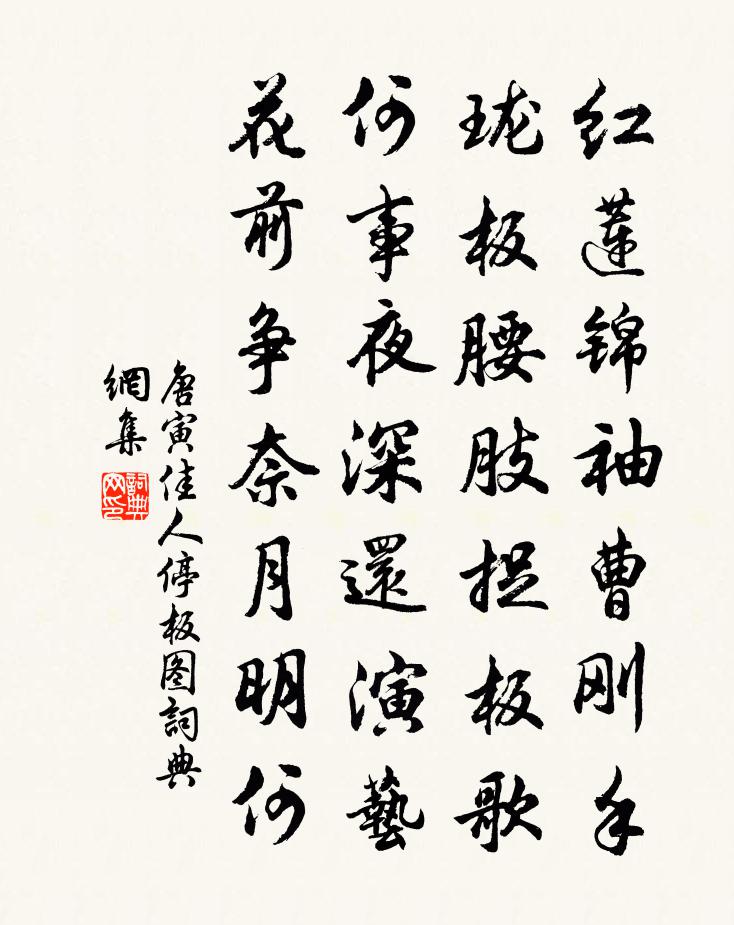 红莲锦袖曹刚手
珑板腰肢捉板歌
何事夜深还演藝
花前争奈月明何
唐寅佳人停板图詞典
網集
詞典网印